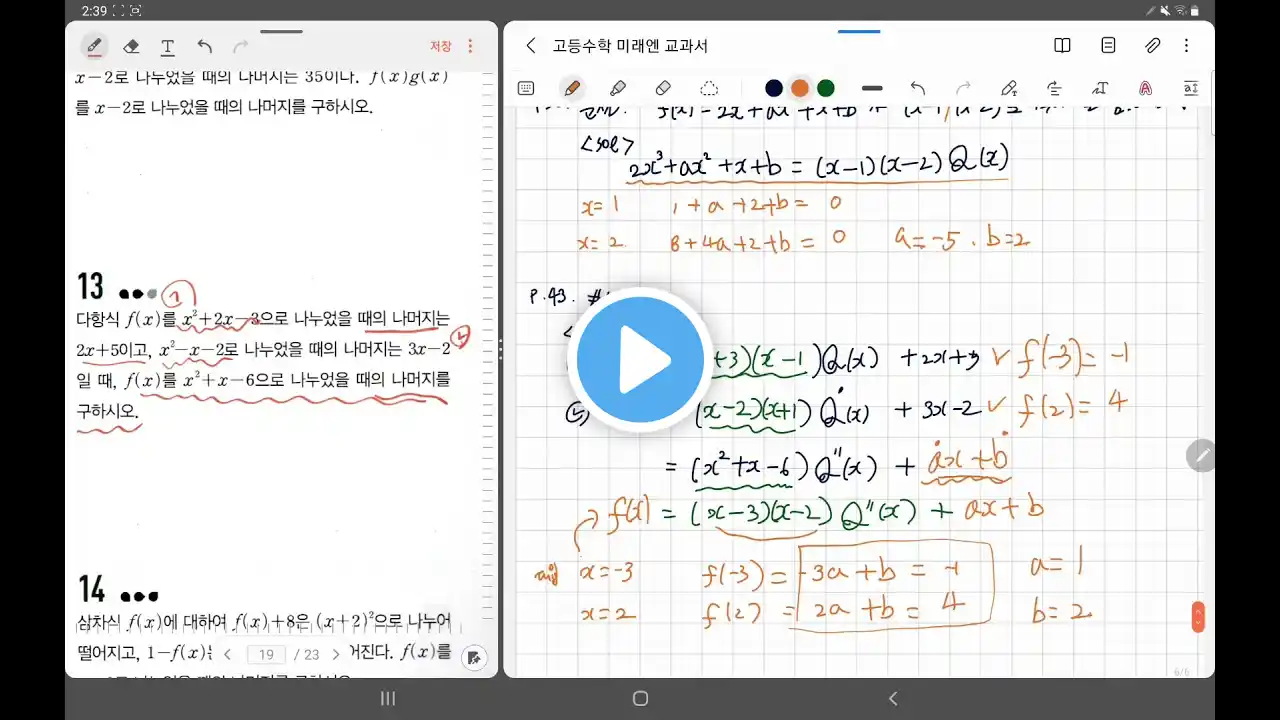 2:39
저장
x−2로 나누었을 때의 나머지는 35이다. f(x)g(x)
를 x−2로 나누었을 때의 나머지를 구하시오.
13
①
다항식 f(x)를 x²+2x−3으로 나누었을 때의 나머지는
2x+5이고, x²−x−2로 나누었을 때의 나머지는 3x−2
일 때, f(x)를 x²+x−6으로 나누었을 때의 나머지를
구하시오.
14
삼차식 f(x)에 대하여 f(x)+8은 (x+2)²으로 나누어
떨어지고, 1−f(x)는
19 / 23
거진다. f(x)를
고등수학 미래엔 교과서
<sol>
2x³+ax²+x+b = (x−1)(x−2)Q(x)
x=1 1+a+2+b= 0
x=2 8+4a+2+b= 0 a=−5. b=2
p.43. #
+3)(x−1)Q(x) +2x+3 ✓ f(−3)= −1
(x−2)(x+1)Q'(x) + 3x−2 ✓ f(2)= 4
= (x²+x−6)Q''(x) + ax+b
f(x) = (x−3)(x−2)Q''(x) + ax+b
x=−3 f(−3)= −3a+b = −1 a=1
x=2 f(2) = 2a+b= 4 b=2
6/6